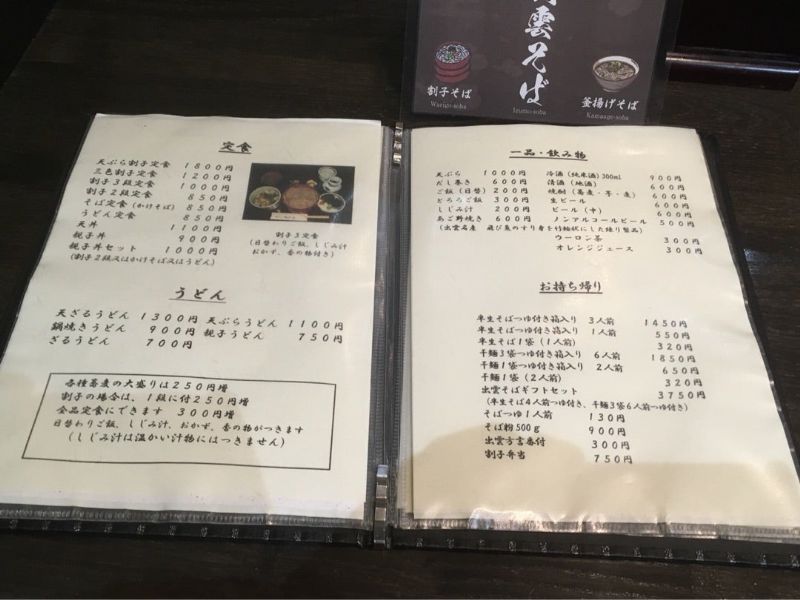 雲そば
Izumo-soba
割子そば
Warigo-soba
釜揚げそば
Kamaage-soba
定食
天ぷら割子定食 1800円
三色割子定食 1200円
割子3段定食 1000円
割子2段定食 850円
そば定食(かけそば) 850円
うどん定食 850円
天丼 1100円
親子丼 900円
親子丼セット 1000円
(割子2段又はかけそば又はうどん)
割子3定食
(日替わりご飯、しじみ汁
おかず、香の物付き)
うどん
天ざるうどん 1300円 天ぷらうどん 1100円
鍋焼きうどん 900円 親子うどん 750円
ざるうどん 700円
各種蕎麦の大盛りは250円増
割子の場合は、1段に付250円増
全品定食にできます 300円増
日替わりご飯、しじみ汁、おかず、香の物がつきます
(しじみ汁は温かい汁物にはつきません)
一品・飲み物
天ぷら 1000円 冷酒(純米酒)300ml 900円
だし巻き 600円 清酒(地酒) 600円
ご飯(日替) 200円 焼酎(蕎麦・芋・麦) 600円
とろろご飯 350円 生ビール 600円
しじみ汁 200円 ビール(中) 600円
あご野焼き 600円 ノンアルコールビール 500円
(出雲名産 飛び魚のすり身を竹輪状にした練り製品)
ウーロン茶 300円
オレンジジュース 300円
お持ち帰り
半生そばつゆ付き箱入り 3人前 1450円
半生そばつゆ付き箱入り 1人前 550円
半生そば1袋(1人前) 320円
干麺3袋つゆ付き箱入り 6人前 1850円
干麺1袋つゆ付き箱入り 2人前 650円
干麺1袋(2人前) 320円
出雲そばギフトセット 3750円
(半生そば4人前つゆ付き、干麺3袋6人前つゆ付き)
そばつゆ1人前 130円
そば粉500g 900円
出雲方言番付 300円
割子弁当 750円